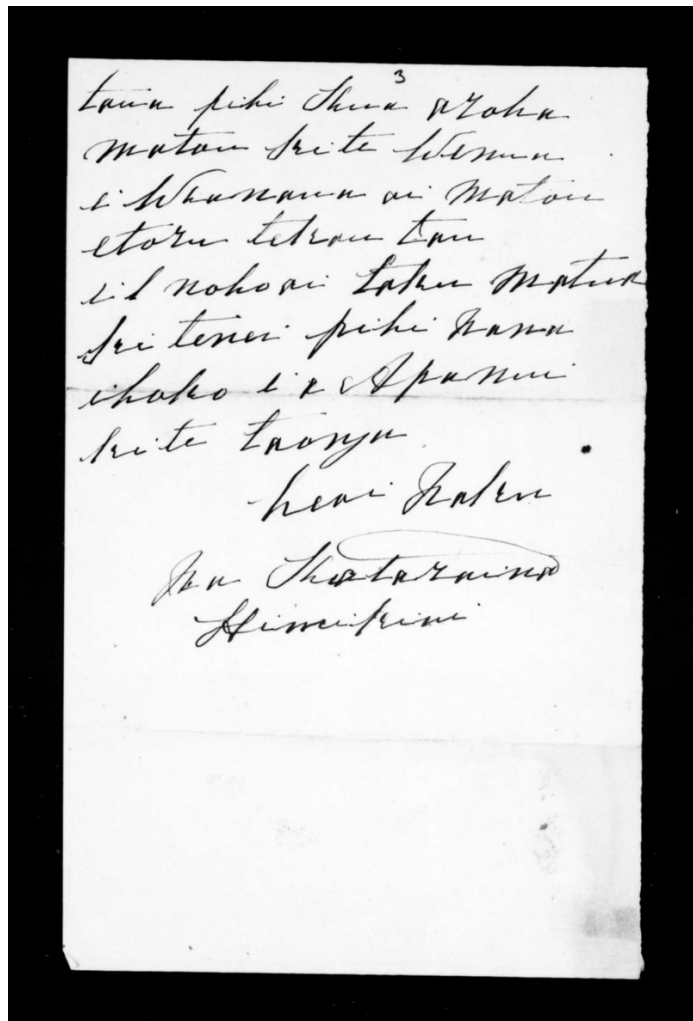 3
taua pihi Kua aroha
matou ki te Wenua
i Whanaua ai matou
etoru tekau tau
i noho ai taku Matua
ki tenei pihi Nana
ihoko i a Apanui
ki te taonga
heoi Naku
Na Kataraina